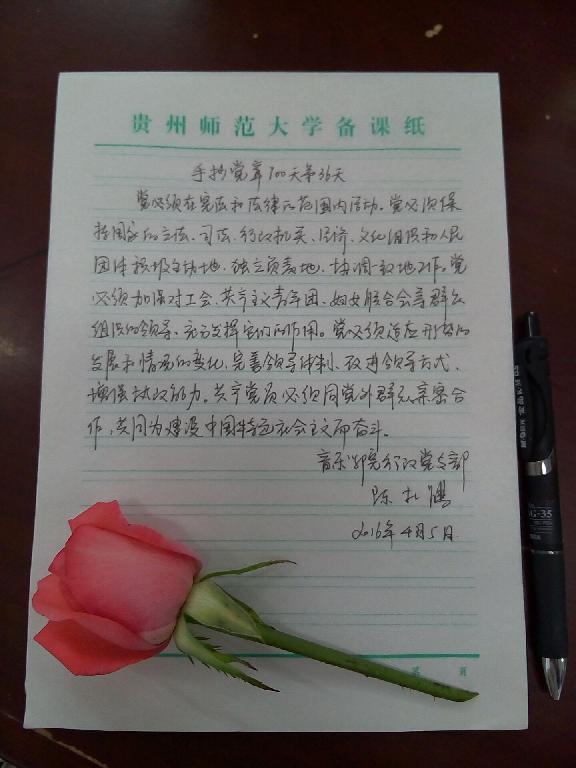 贵州师范大学备课纸
手抄党章100天第36天
党必须在宪法和法律的范围内活动。党必须保
持国家的立法、司法、行政机关、经济、文化组织和人民
团体积极主动地、独立负责地、协调一致地工作。党
必须加强对工会、共产主义青年团、妇女联合会等群众
组织的领导、充分发挥它们的作用。党必须适应形势的
发展和情况的变化,完善领导体制、改进领导方式、
增强执政能力。共产党员必须同党外群众亲密合
作,共同为建设中国特色社会主义而奋斗。
音乐学院行政党支部
陈
2016年4月5日
第 页
G-35